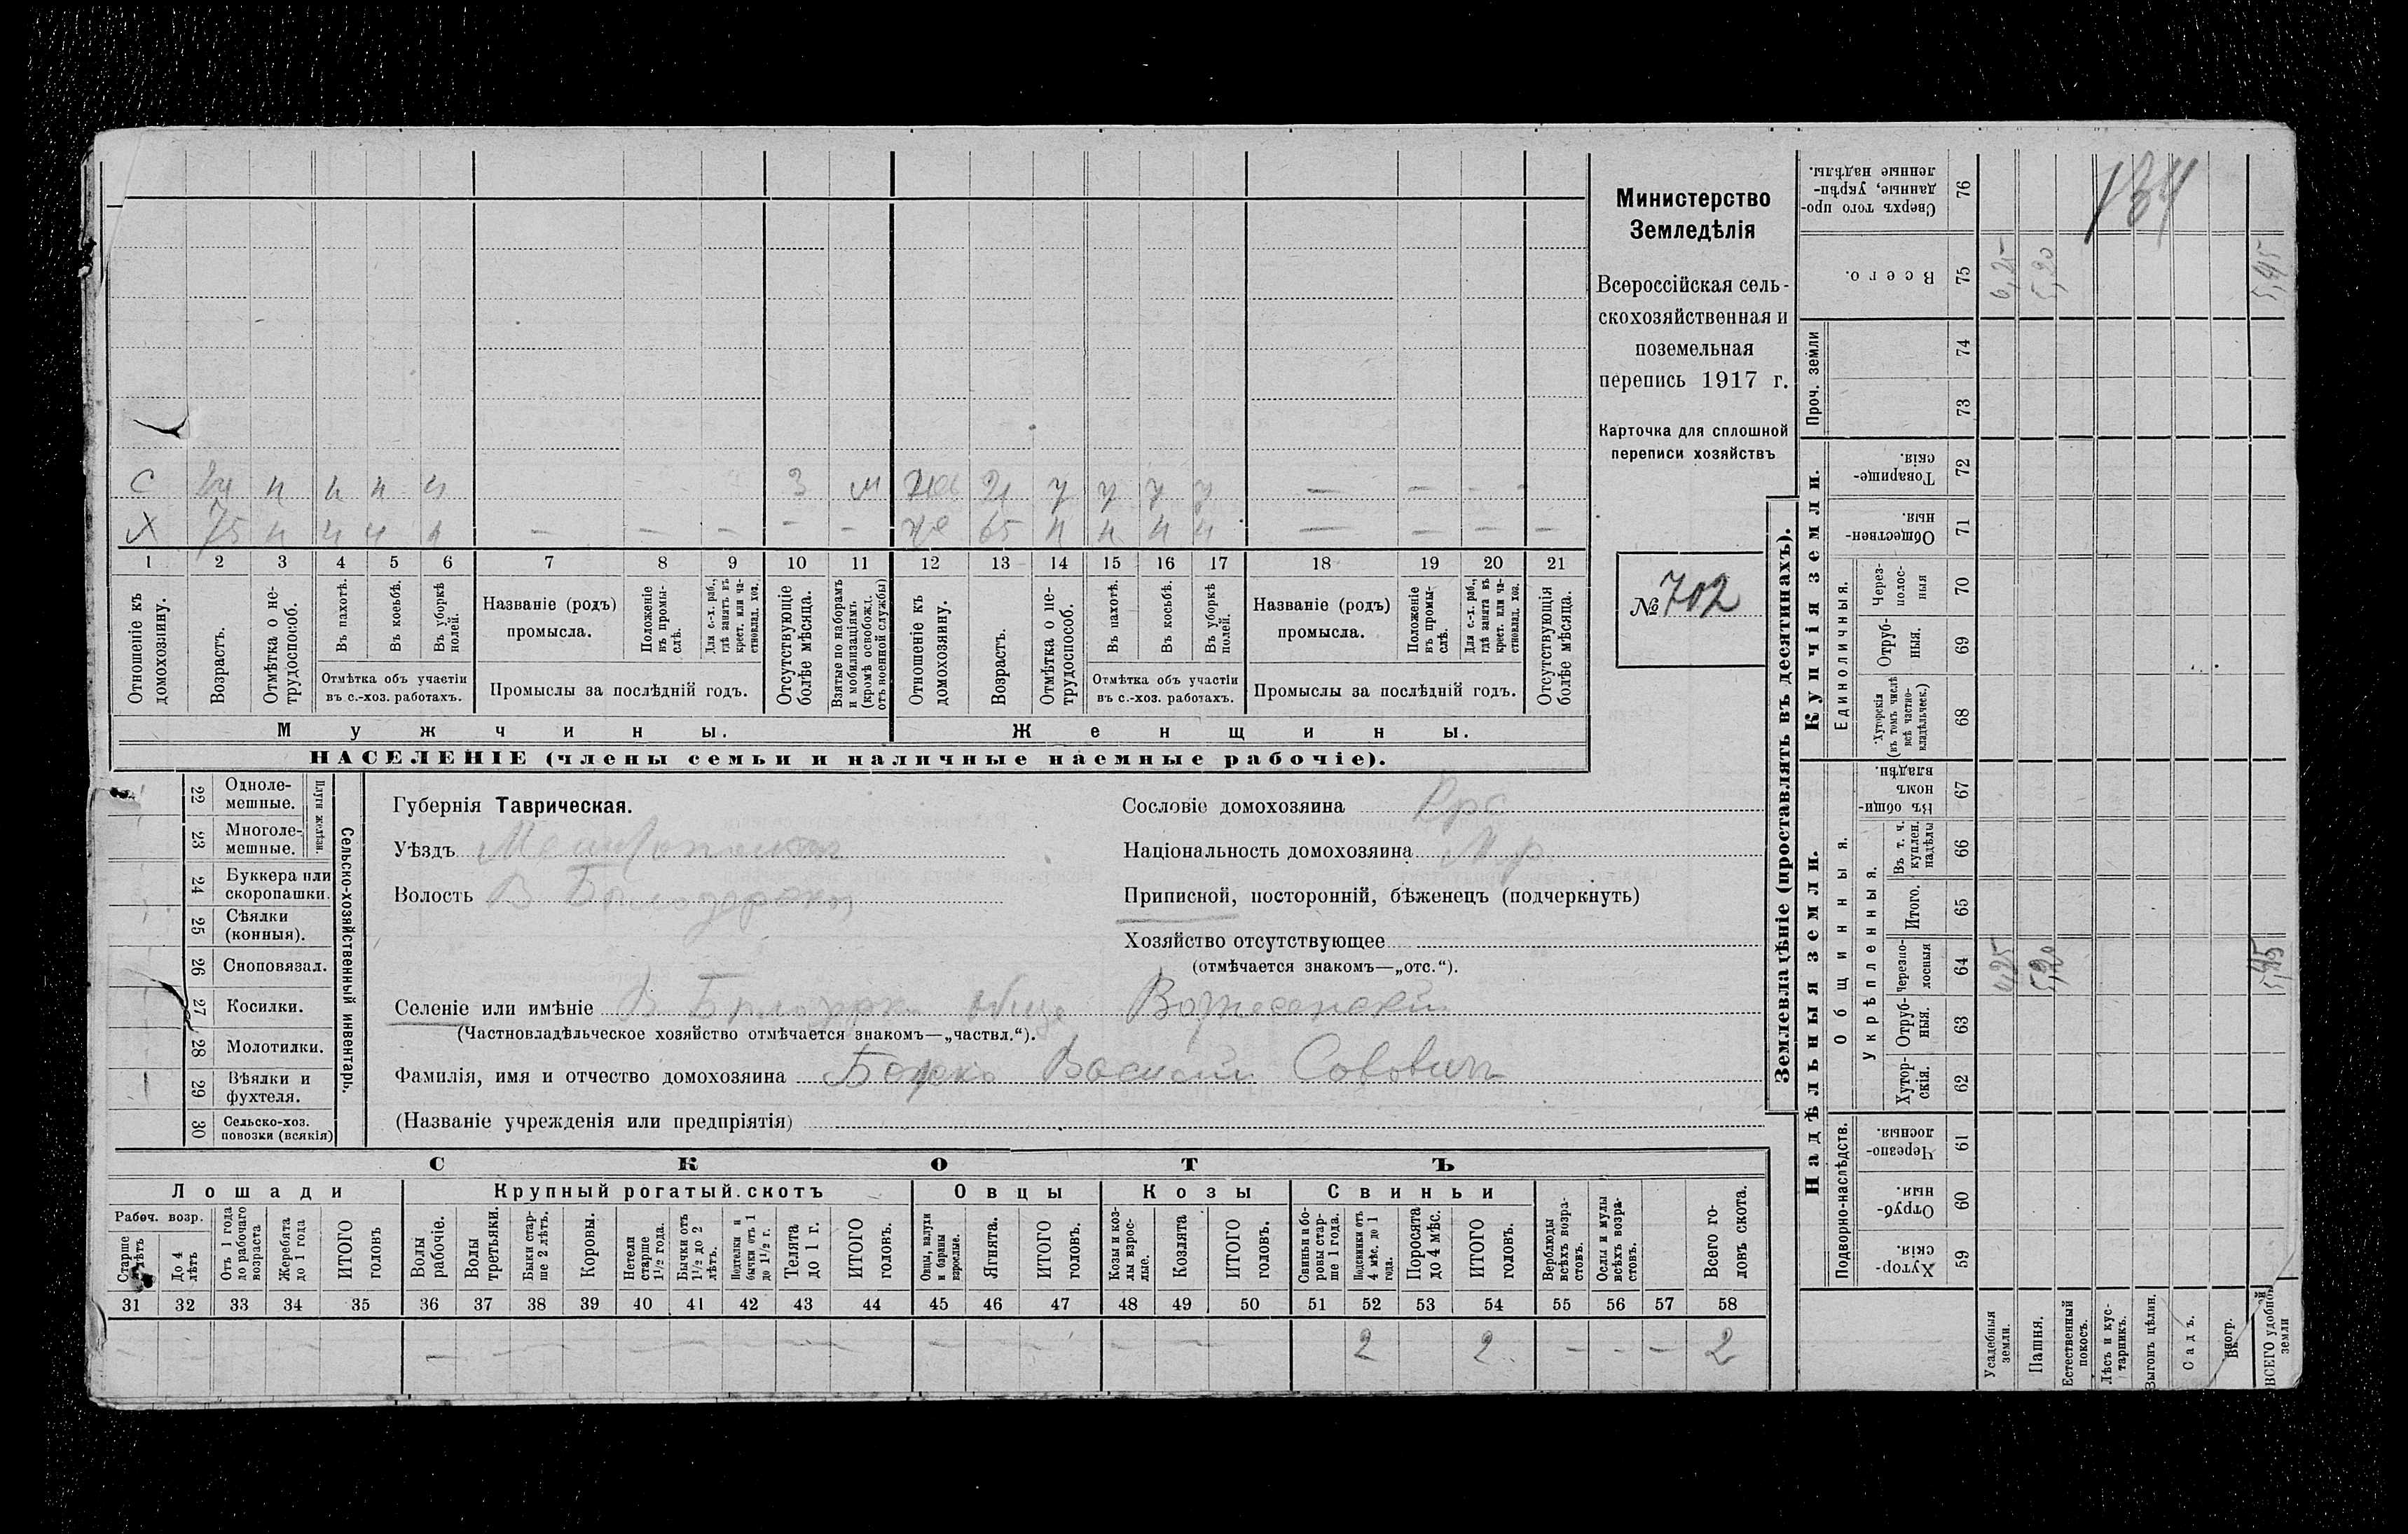 С 24 н н н н 3 м 21 у у у у — — - -
Х 75 н н н н — — — - — же 65 н н н н — — — —
1 2 3 4 5 6 7 8 9 10 11 12 13 14 15 16 17 18 19 20 21
Отношеніе къ домохозяину.
Возрастъ.
Отмѣтка о не-трудоспособ.
Въ пахотѣ.
Въ косьбѣ.
Въ уборкѣ полей.
Отмѣтка объ участіи
въ с.-хоз. работахъ.
Названіе (родъ)
промысла.
Положеніе въ промы-слѣ.
Для с.-х. раб., гдѣ занятъ въ крест. или ча-стновлад. хоз.
Промыслы за послѣдній годъ.
Отсутствующіе болѣе мѣсяца.
Взятые по наборамъ и мобилизаціямъ (кромѣ освобожд. отъ военной службы)
Отношеніе къ домохозяину.
Возрастъ.
Отмѣтка о не-трудоспособ.
Въ пахотѣ.
Въ косьбѣ.
Въ уборкѣ полей.
Отмѣтка объ участіи
въ с.-хоз. работахъ.
Названіе (родъ)
промысла.
Положеніе въ промы-слѣ.
Для с.-х. раб., гдѣ занята въ крест. или ча-стновлад. хоз.
Промыслы за послѣдній годъ.
Отсутствующія болѣе мѣсяца.
Мужчины.
Женщины.
НАСЕЛЕНІЕ (члены семьи и наличные наемные рабочіе).
Министерство
Земледѣлія
Всероссійская сель-
скохозяйственная и
поземельная
перепись 1917 г.
Карточка для сплошной
переписи хозяйствъ
№ 702
Сельско-хозяйственный инвентарь.
Плуги желѣзн.
22 Одноле-мешные.
23 Многоле-мешные.
24 Буккера или скоропашки.
25 Сѣялки (конныя).
26 Сноповязал.
27 Косилки.
28 Молотилки.
29 Вѣялки и фухтеля.
30 Сельско-хоз. повозки (всякія)
Губернія Таврическая.
Уѣздъ
Волость В
Сословіе домохозяина
Національность домохозяина М.р.
Приписной, посторонній, бѣженецъ (подчеркнуть)
Хозяйство отсутствующее
(отмѣчается знакомъ—„отс.“).
Селеніе или имѣніе В
(Частновладѣльческое хозяйство отмѣчается знакомъ—„частвл.“).
Фамилія, имя и отчество домохозяина
(Названіе учрежденія или предпріятія)
СКОТЪ
Лошади
Крупный рогатый скотъ
Овцы
Козы
Свиньи
Рабоч. возр.
Старше лѣтъ
До 4 лѣтъ
Отъ 1 года до рабочаго возраста
Жеребята до 1 года
ИТОГО головъ
Волы рабочіе.
Волы третьяки.
Быки стар-ше 2 лѣтъ.
Коровы.
Нетели старше 1½ года.
Бычки отъ 1½ до 2 лѣтъ.
Подтелки и бычки отъ 1 до 1½ г.
Телята до 1 г.
ИТОГО головъ.
Овцы, валухи и бараны взрослые.
Ягнята.
ИТОГО головъ.
Козы и коз-лы взрос-лые.
Козлята
ИТОГО головъ.
Свиньи и бо-ровы стар-ше 1 года.
Подсвинки отъ 4 мѣс. до 1 года.
Поросята до 4 мѣс.
ИТОГО головъ.
Верблюды всѣхъ возра-стовъ.
Ослы и мулы всѣхъ возра-стовъ.
Всего го-ловъ скота.
31 32 33 34 35 36 37 38 39 40 41 42 43 44 45 46 47 48 49 50 51 52 53 54 55 56 57 58
2 2 — — — 2
Землевладѣніе (проставлять въ десятинахъ).
Сверхъ того про-данные, укрѣп-ленные надѣлы. 76
Всего. 75
Проч. земли 74 73
Купчія земли.
Товарище-скія. 72
Обществен-ныя. 71
Единоличныя.
Через-полос-ныя 70
Отруб-ныя. 69
Хуторскія (въ томъ числѣ всѣ частно-владѣльческ.) 68
Надѣльныя земли.
Общинныя.
Въ общи-номъ владѣн. 67
Укрѣпленныя.
Въ т. ч. куплен. надѣлы 66
Итого. 65
Черезпо-лосныя 64
Отруб-ныя. 63
Хутор-скія. 62
Подворно-наслѣдств.
Черезпо-лосныя. 61
Отруб-ныя. 60
Хутор-скія. 59
Усадебныя земли.
Пашня.
Естественный покосъ.
Лѣсъ и кус-тарникъ.
Выгонъ цѣлин.
Садъ.
ВСЕГО удобной земли
5,20
5,45
5,20
5,45